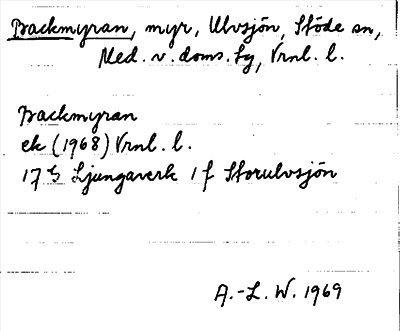 Backmyran, myr, Ulvsjön, Stöde sn,
Med. v. doms. sg, Vrnl. l.
Backmyran
ek (1968) Vrnl. l.
17 G Ljungaverk 1 f Storulvsjön
A.-L. W. 1969